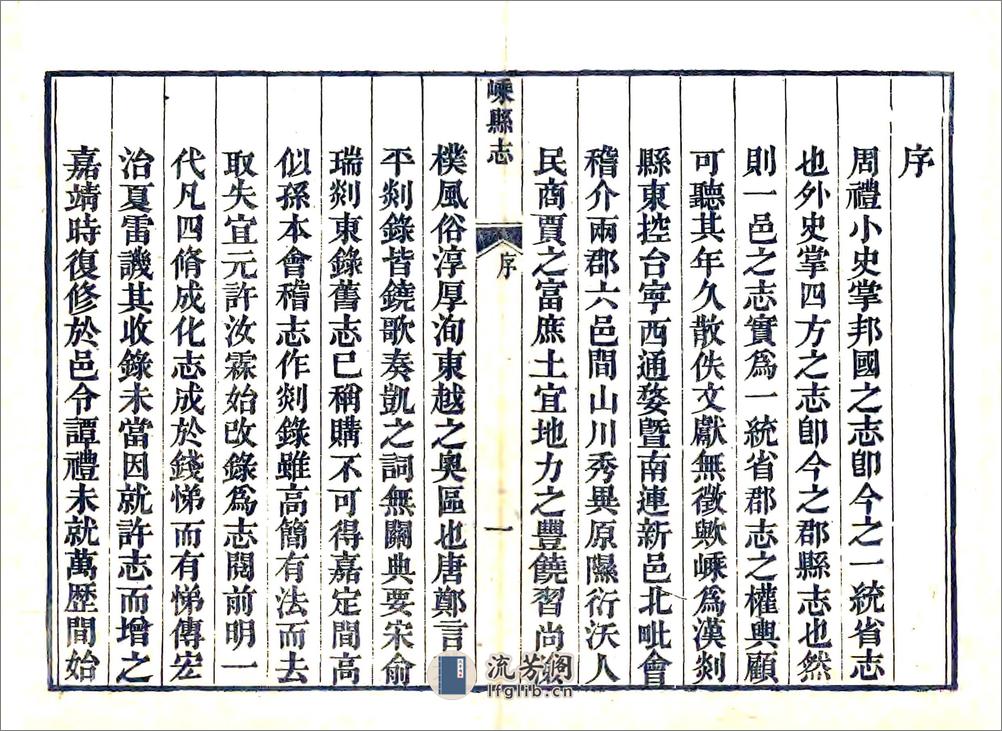 序
周禮小史掌邦國之志卽今之一統省志
也外史掌四方之志卽今之郡縣志也然
則一邑之志實爲一統省郡志之權輿顧
可聽其年久散佚文獻無徵歟嵊爲漢剡
縣東控台寧西通婺暨南連新邑北毗會
稽介兩郡六邑間山川秀異原隰衍沃人
民商賈之富庶土宜地力之豐饒習尚
嵊縣志
序
一
樸風俗淳厚洵東越之奧區也唐鄭言
平剡錄皆鐃歌奏凱之詞無關典要宋俞
瑞剡東錄舊志已稱購不可得嘉定間高
似孫本會稽志作剡錄雖高簡有法而去
取失宜元許汝霖始改錄爲志閱前明一
代凡四脩成化志成於錢悌而有悌傳宏
治夏雷譏其收錄未當因就許志而增之
嘉靖時復修於邑令譚禮未就萬歷間始
流芳閣
lfglib.cn